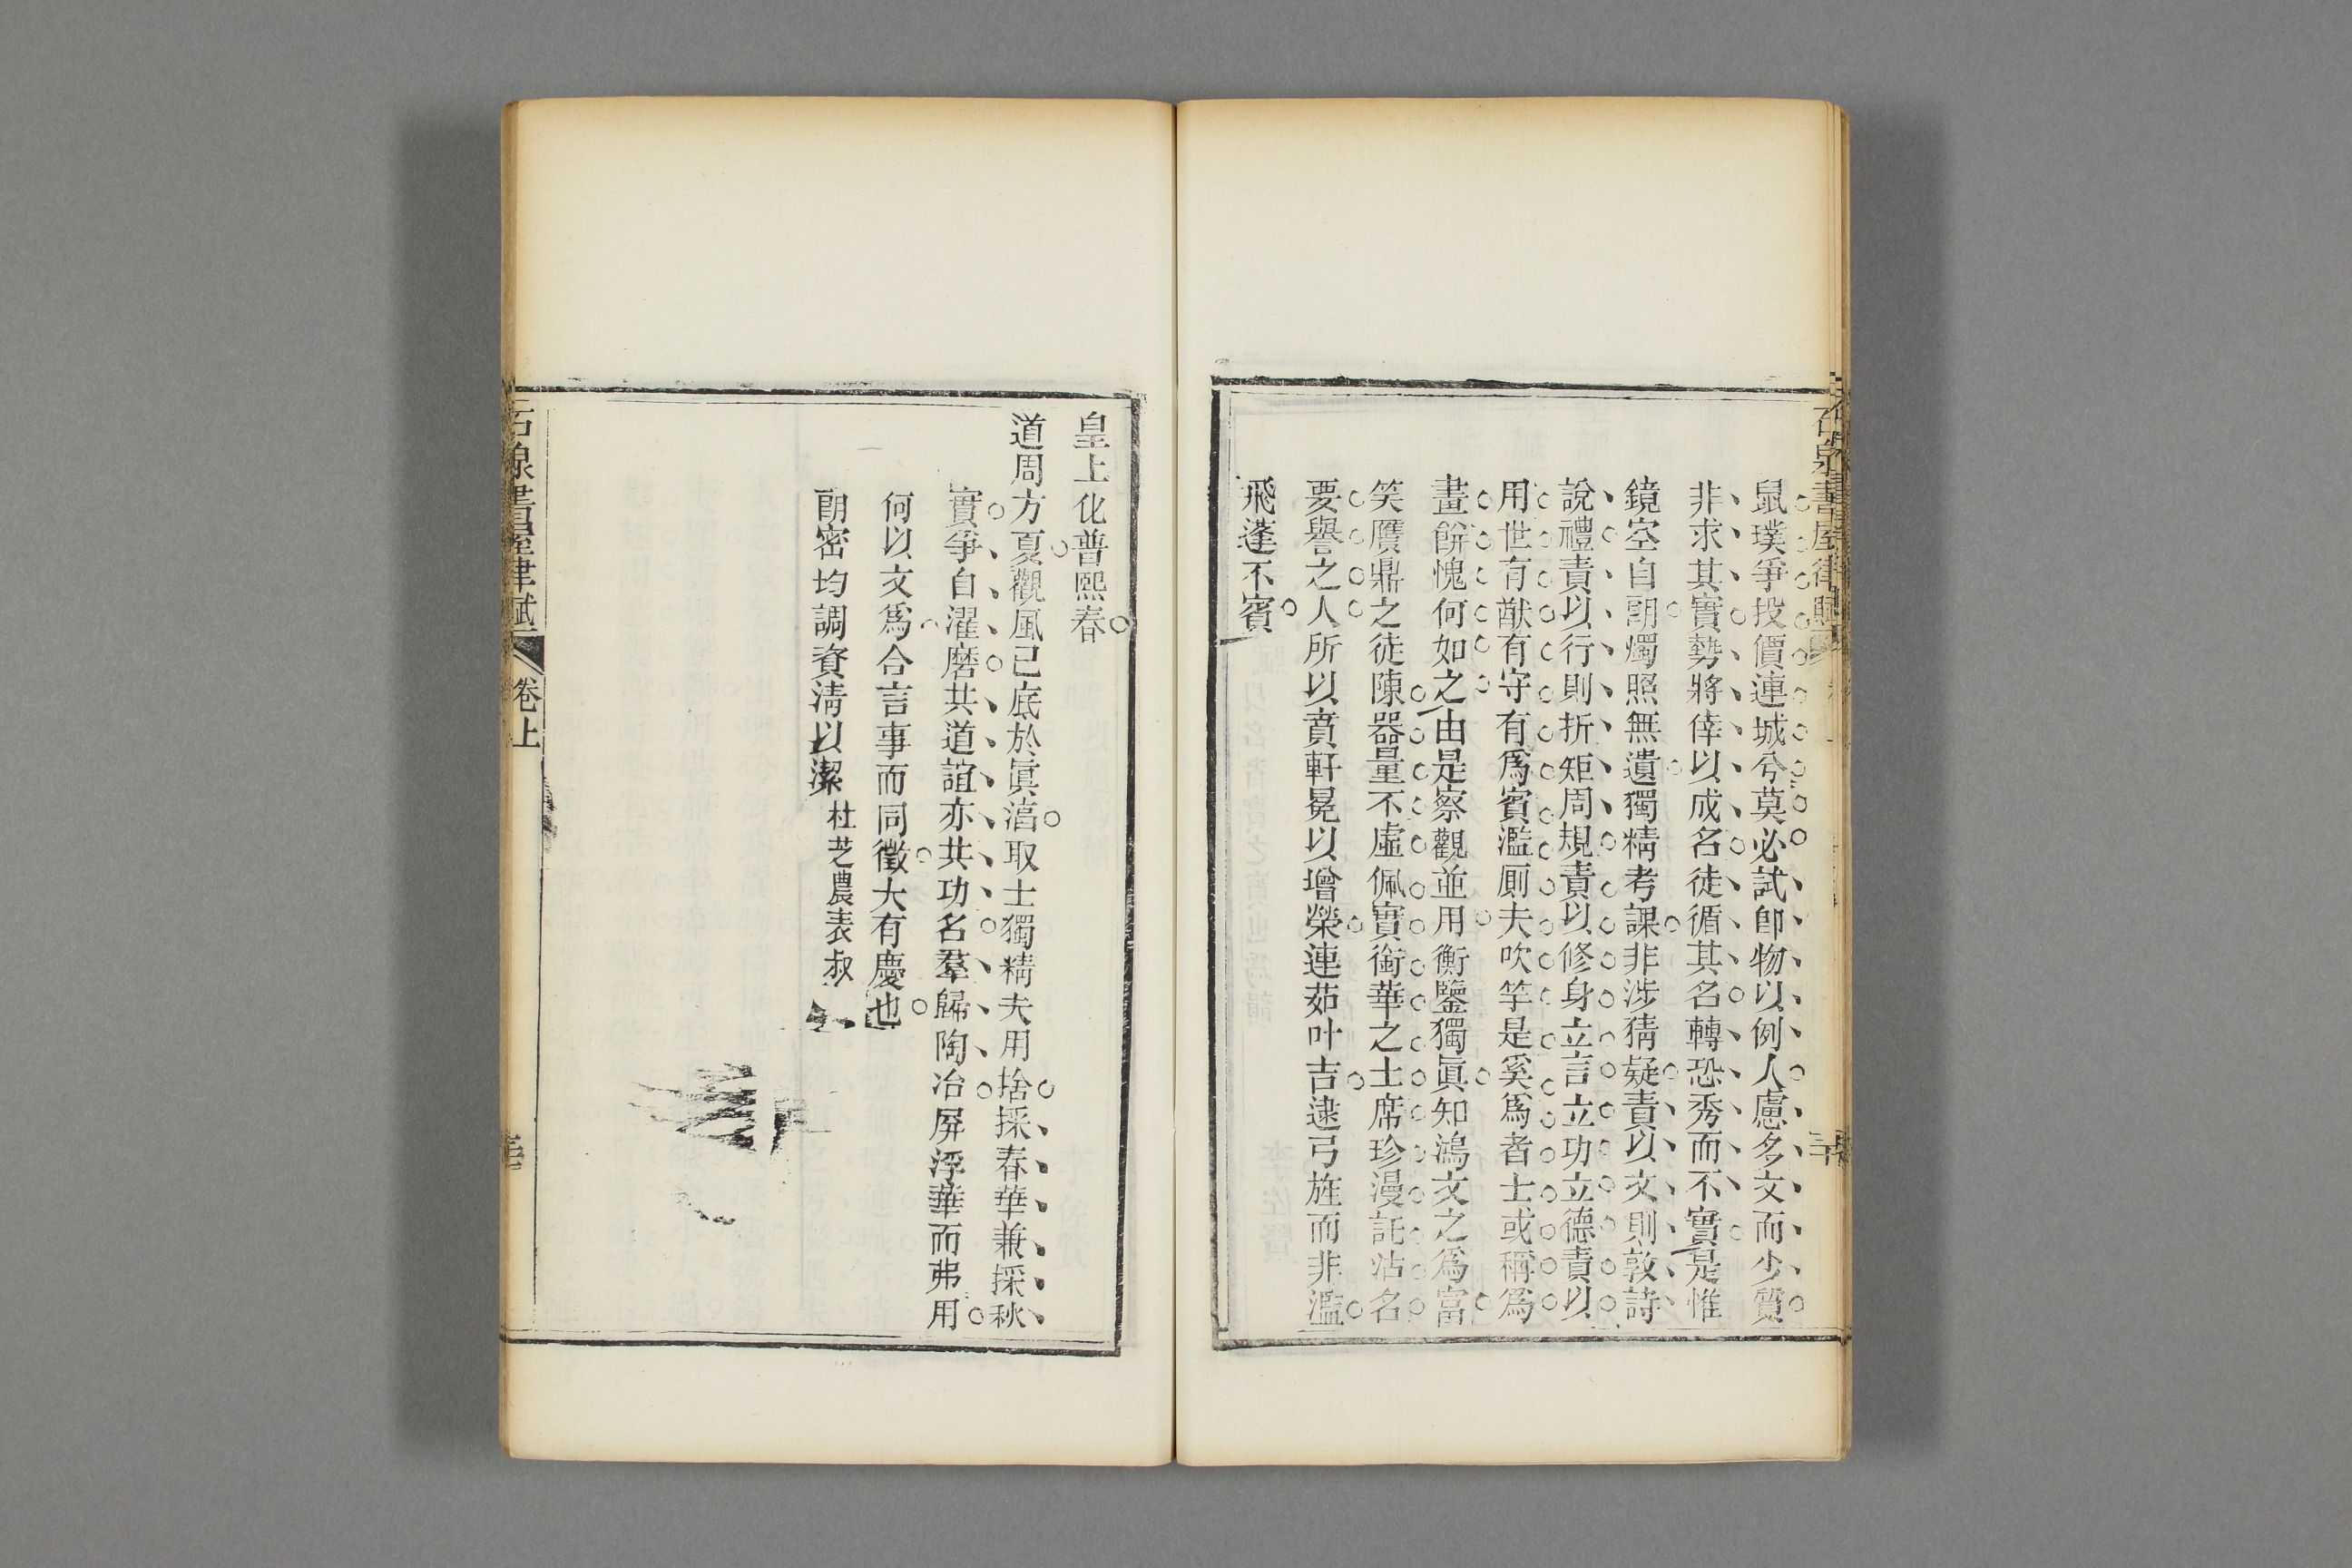 鼠璞爭投價連城兮莫必試卽物以例人慮多文而少質
非求其實勢將倖以成名徒循其名轉恐秀而不實是惟
鏡空自朗燭照無遺獨精考課非涉猜疑責以文則敦詩
說禮責以行則折矩周規責以修身立言立功立德責以
用世有猷有守有爲賓濫厠夫吹竽是奚爲者士或稱爲
畫餅愧何如之由是察觀並用衡鑒獨眞知鴻文之爲富
笑贋鼎之徒陳器量不虛佩實銜華之士席珍漫託沽名
要譽之人所以賁軒冕以增榮連茹叶吉逮弓旌而非濫
飛蓬不賓
皇上化普熙春
道周方夏觀風已底於眞淳取士獨精夫用捨採春華兼採秋
實爭自濯磨共道誼亦共功名羣歸陶冶屏浮華而弗用
何以文爲合言事而同徵大有慶也
朗密均調資淸以潔 杜芝農表叔
石泉書屋律賦 卷上